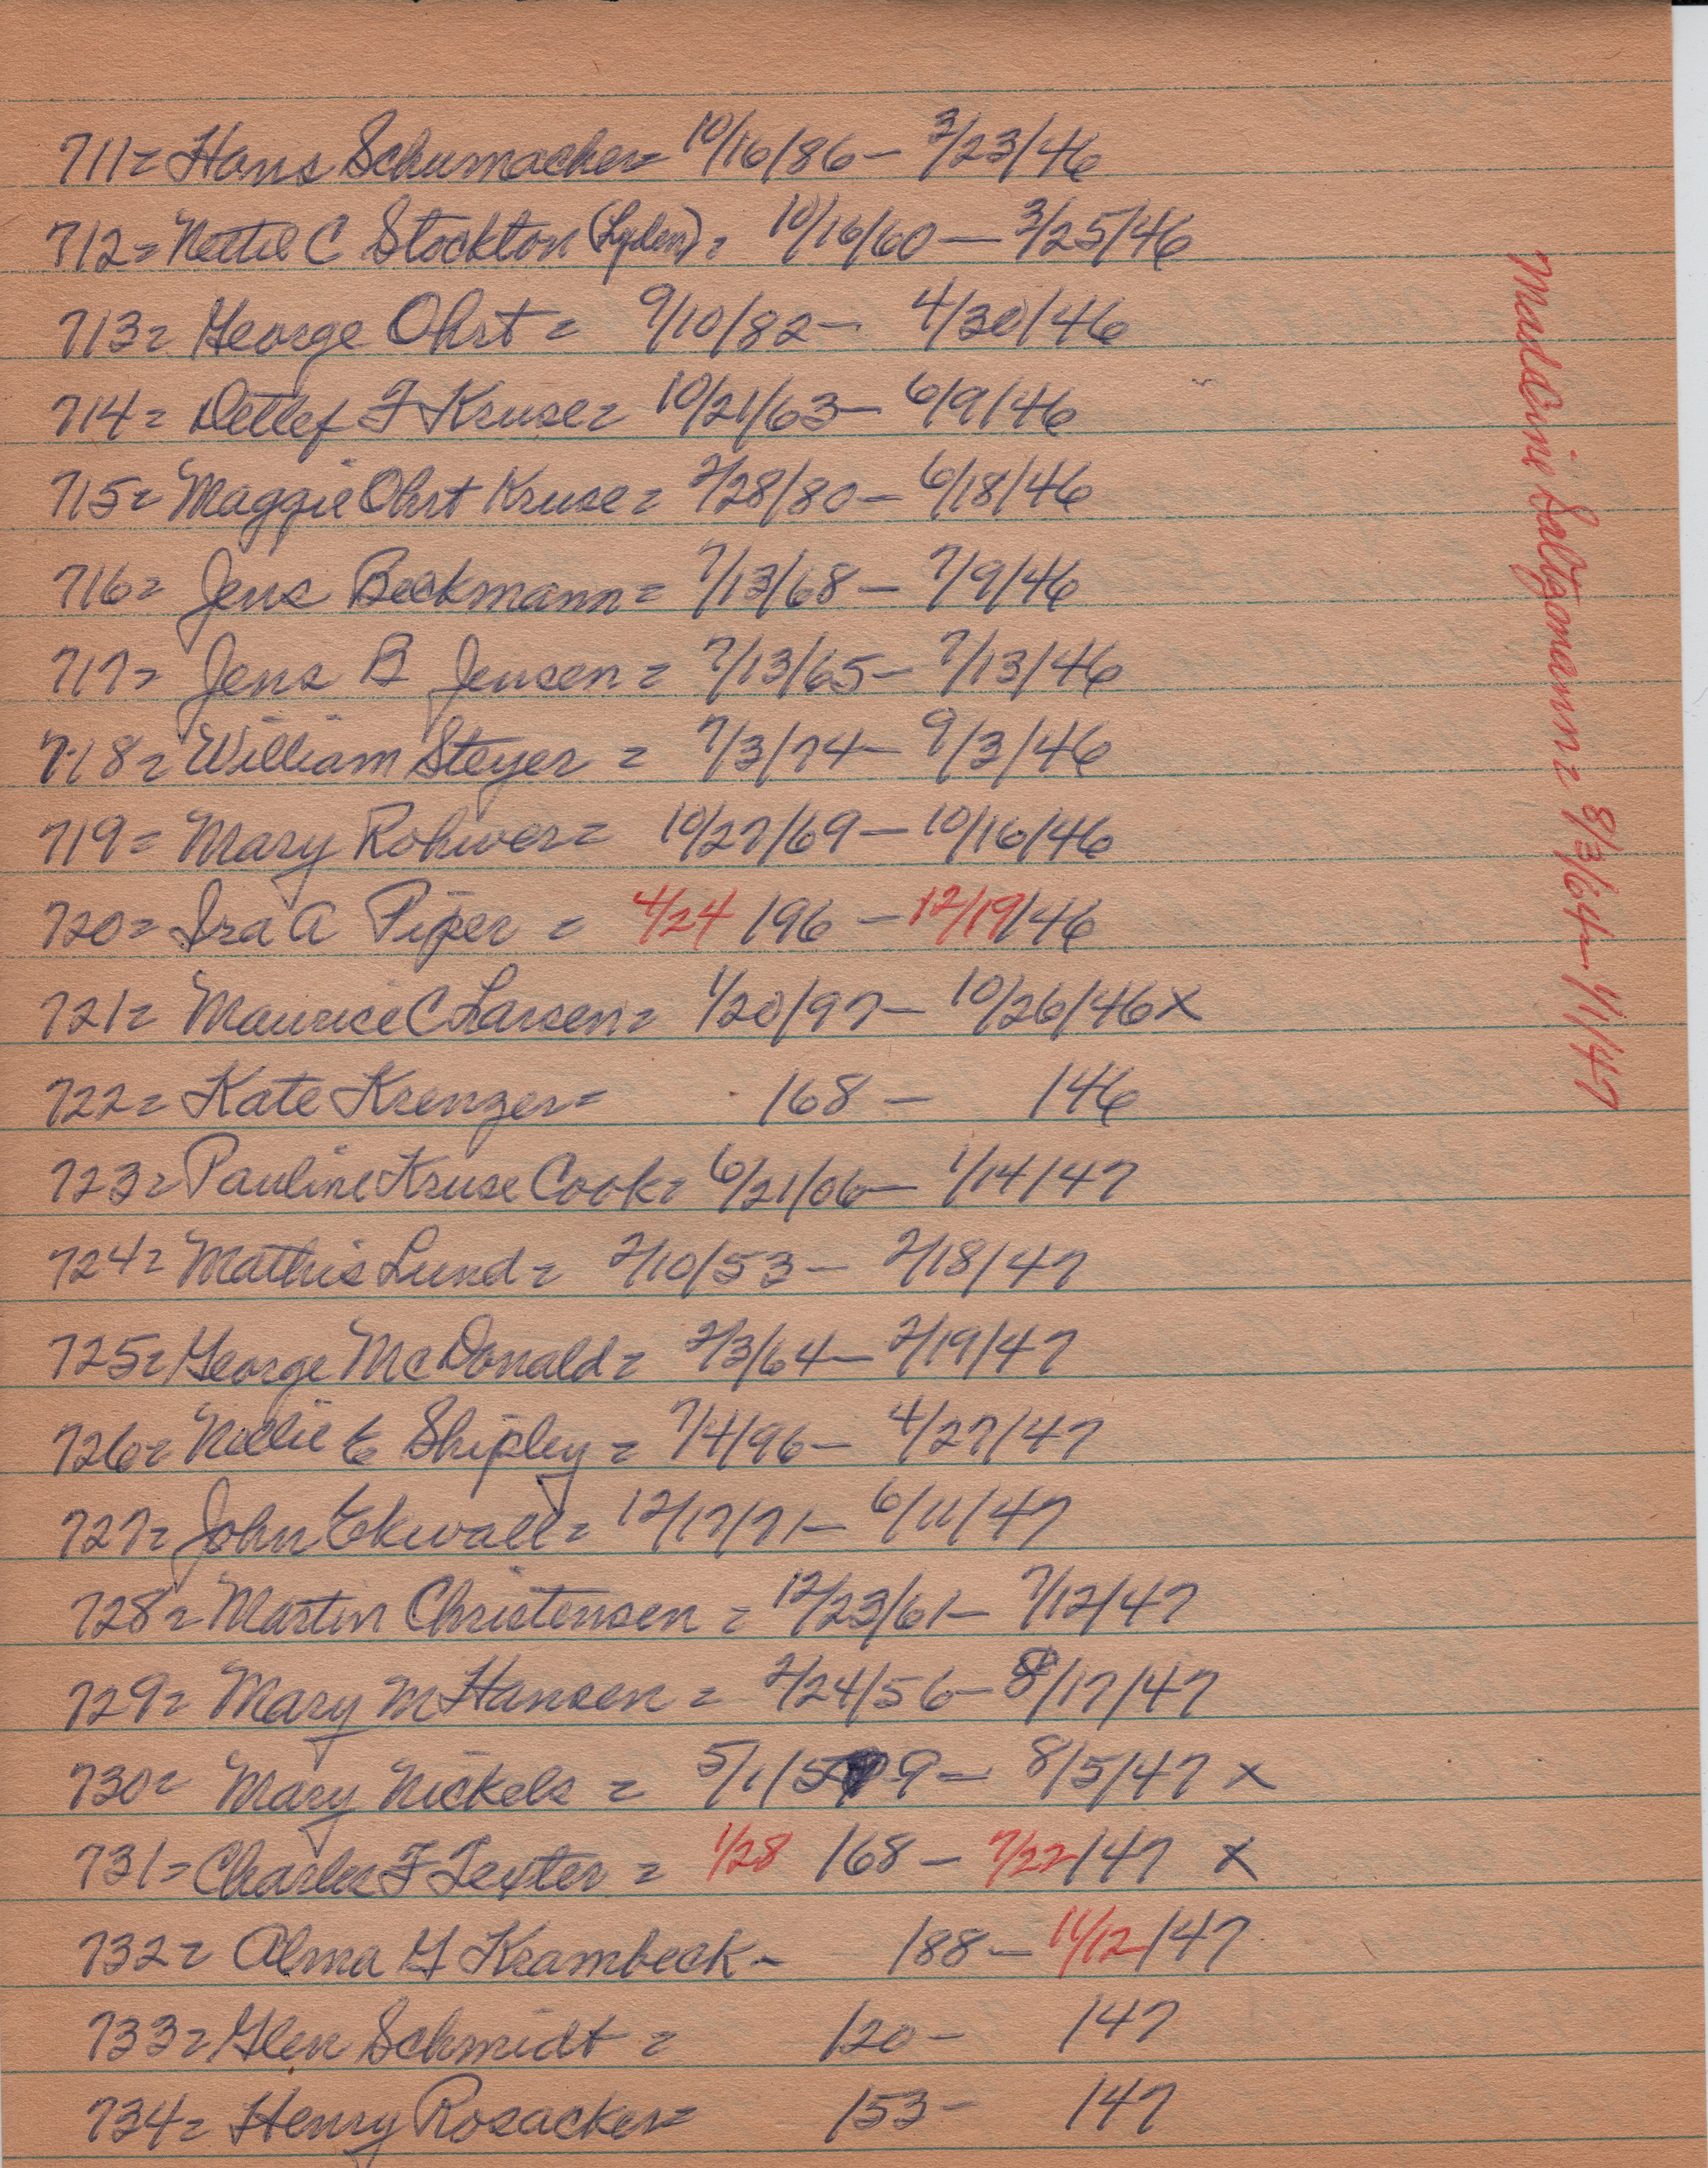 711= Hans Schumacher= 10/16/86 - 3/23/46
712= Nettie C Stockton (Lyden)= 10/16/60 - 3/25/46
713= George Ohrt = 9/10/82 - 4/30/46
714= Detlef F Kruse= 10/21/63 - 6/9/46
715= Maggie Ohrt Kruse= 2/28/80 - 6/18/46
716= Jens Beckmann= 7/13/68 - 7/9/46
717= Jens B Jensen= 7/13/65 - 7/13/46
718= William Steyer = 7/3/74 - 9/3/46
719= Mary Rohwer= 10/27/69 - 10/16/46
720= Ira A Piper = 4/24 /96 - 12/19/46
721= Maurice C Larsen= 1/20/97 - 10/26/46 X
722= Kate Krenzer= /68 - /46
723= Pauline Kruse Cook= 6/21/06 - 1/14/47
724= Mathis Lund= 2/10/53 - 2/18/47
725= George McDonald= 2/3/64 - 2/19/47
726= Nellie E Shipley = 7/4/96 - 4/27/47
727= John Ekwall= 12/17/71 - 6/11/47
728= Martin Christensen = 12/23/61 - 7/12/47
729= Mary M Hansen = 2/24/56 - 8/17/47
730= Mary Nickels = 5/1/59 - 8/5/47 X
731= Charles F Texter = 1/28 /68 - 7/22/47 X
732= Alma G Krambeck - /88 - 11/12/47
733= Glen Schmidt = /20 - /47
734= Henry Rosacker= /53 - /47
Maddline Saltzmann= 8/3/64 - 1/1/47